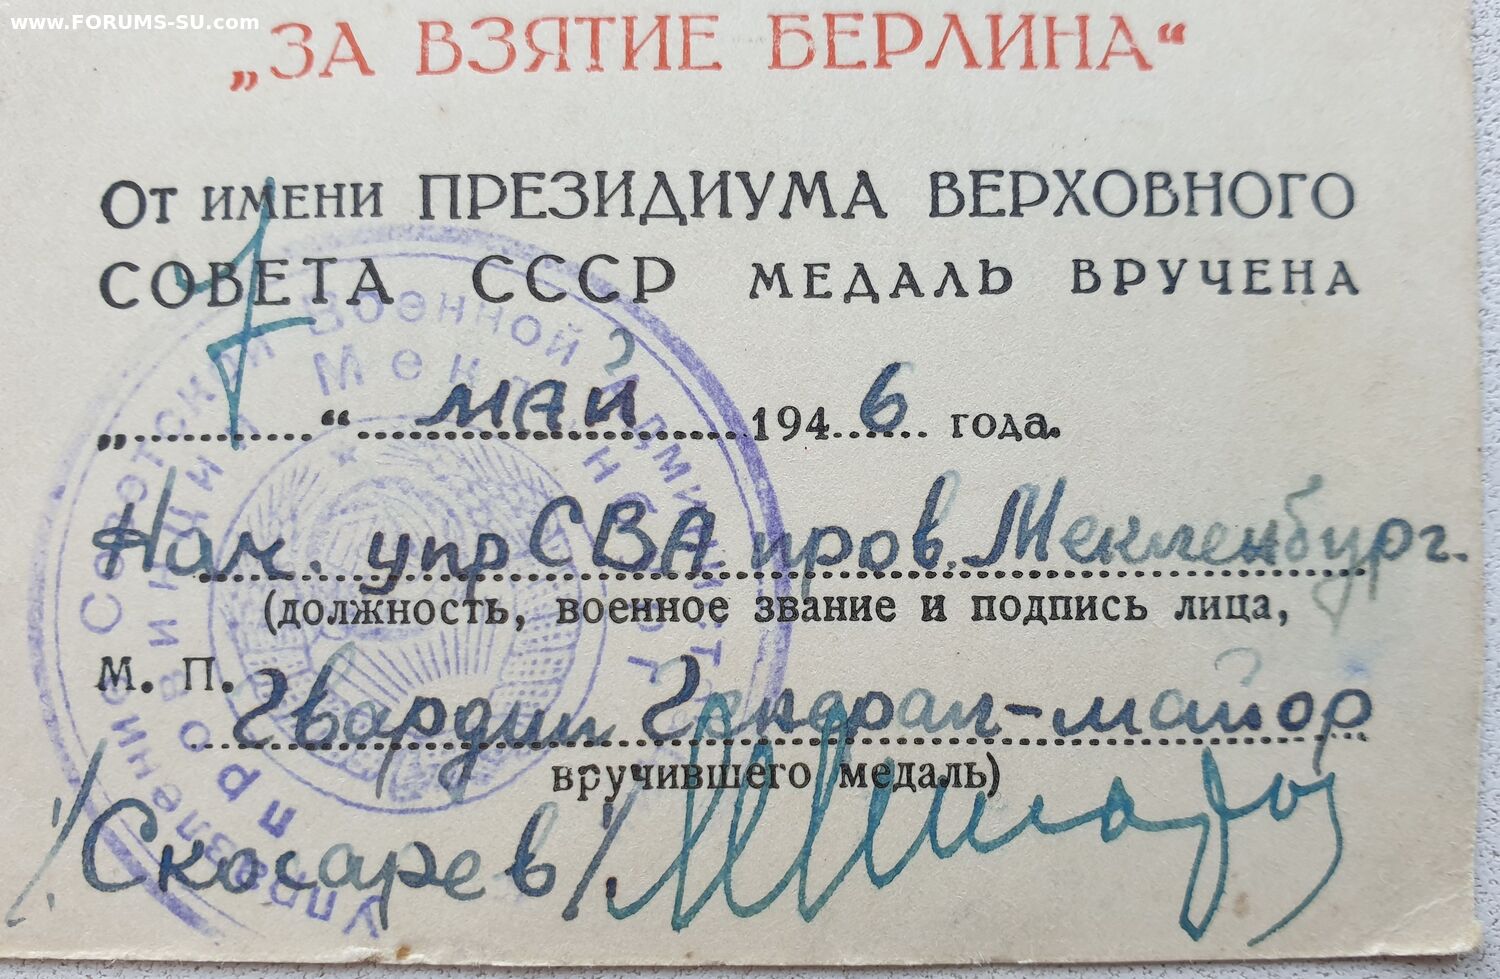 www.FORUMS-SU.com
„ЗА ВЗЯТИЕ БЕРЛИНА“
От имени ПРЕЗИДИУМА ВЕРХОВНОГО
СОВЕТА СССР МЕДАЛЬ ВРУЧЕНА
„7“ май 1946 года.
Нач. упр СВА пров. Мекленбург.
(должность, военное звание и подпись лица,
М. П. Гвардии Генерал-майор
вручившего медаль)
/Скосарев/
Управление Советской Военной Администр
провинции Мекленбург